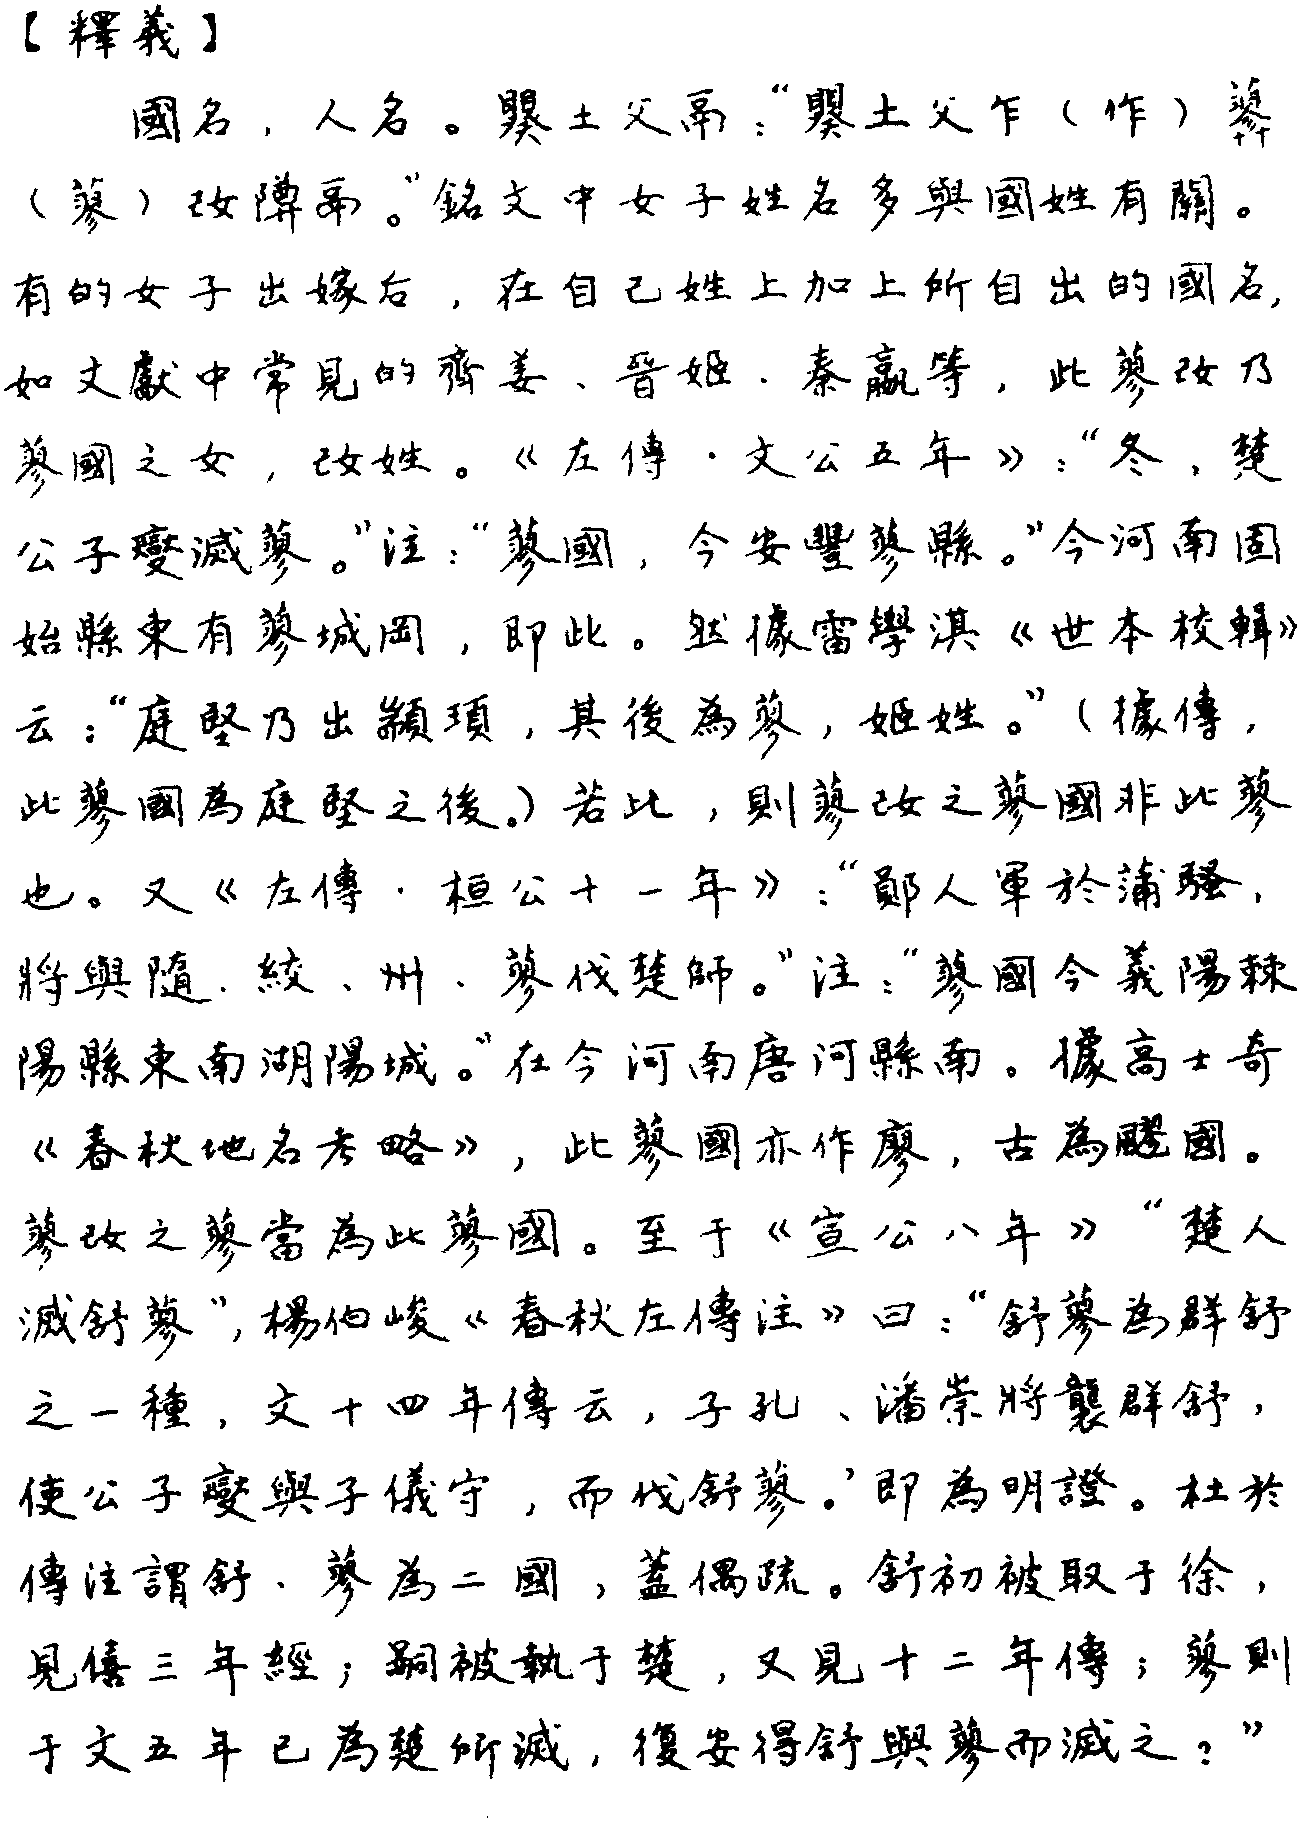 【釋義】
國名，人名。㠱土父鬲：“㠱土父乍（作）
（蓼）改隮鬲。”銘文中女子姓名多與國姓有關。
有的女子出嫁后，在自己姓上加上所自出的國名，
如文獻中常見的齊姜、晉姬、秦嬴等，此蓼改乃
蓼國之女，改姓。《左傳·文公五年》：“冬，楚
公子燮滅蓼。”注：“蓼國，今安豐蓼縣。”今河南固
始縣東有蓼城岡，即此。然據雷學淇《世本校輯》
云：“庭堅乃出顓頊，其後為蓼，姬姓。”（據傳，
此蓼國為庭堅之後。）若此，則蓼改之蓼國非此蓼
也。又《左傳·桓公十一年》：“鄖人軍於蒲騷，
將與隨、絞、州、蓼伐楚師。”注：“蓼國今義陽棘
陽縣東南湖陽城。”在今河南唐河縣南。據高士奇
《春秋地名考略》，此蓼國亦作廖，古為飂國。
蓼改之蓼當為此蓼國。至于《宣公八年》“楚人
滅舒蓼”，楊伯峻《春秋左傳注》曰：“舒蓼為群舒
之一種，文十四年傳云，子孔、潘崇將襲群舒，
使公子燮與子儀守，而伐舒蓼。’即為明證。杜於
傳注謂舒、蓼為二國，蓋偶疏。舒初被取于徐，
見僖三年經；嗣被執于楚，又見十二年傳；蓼則
于文五年已為楚所滅，復安得舒與蓼而滅之？”